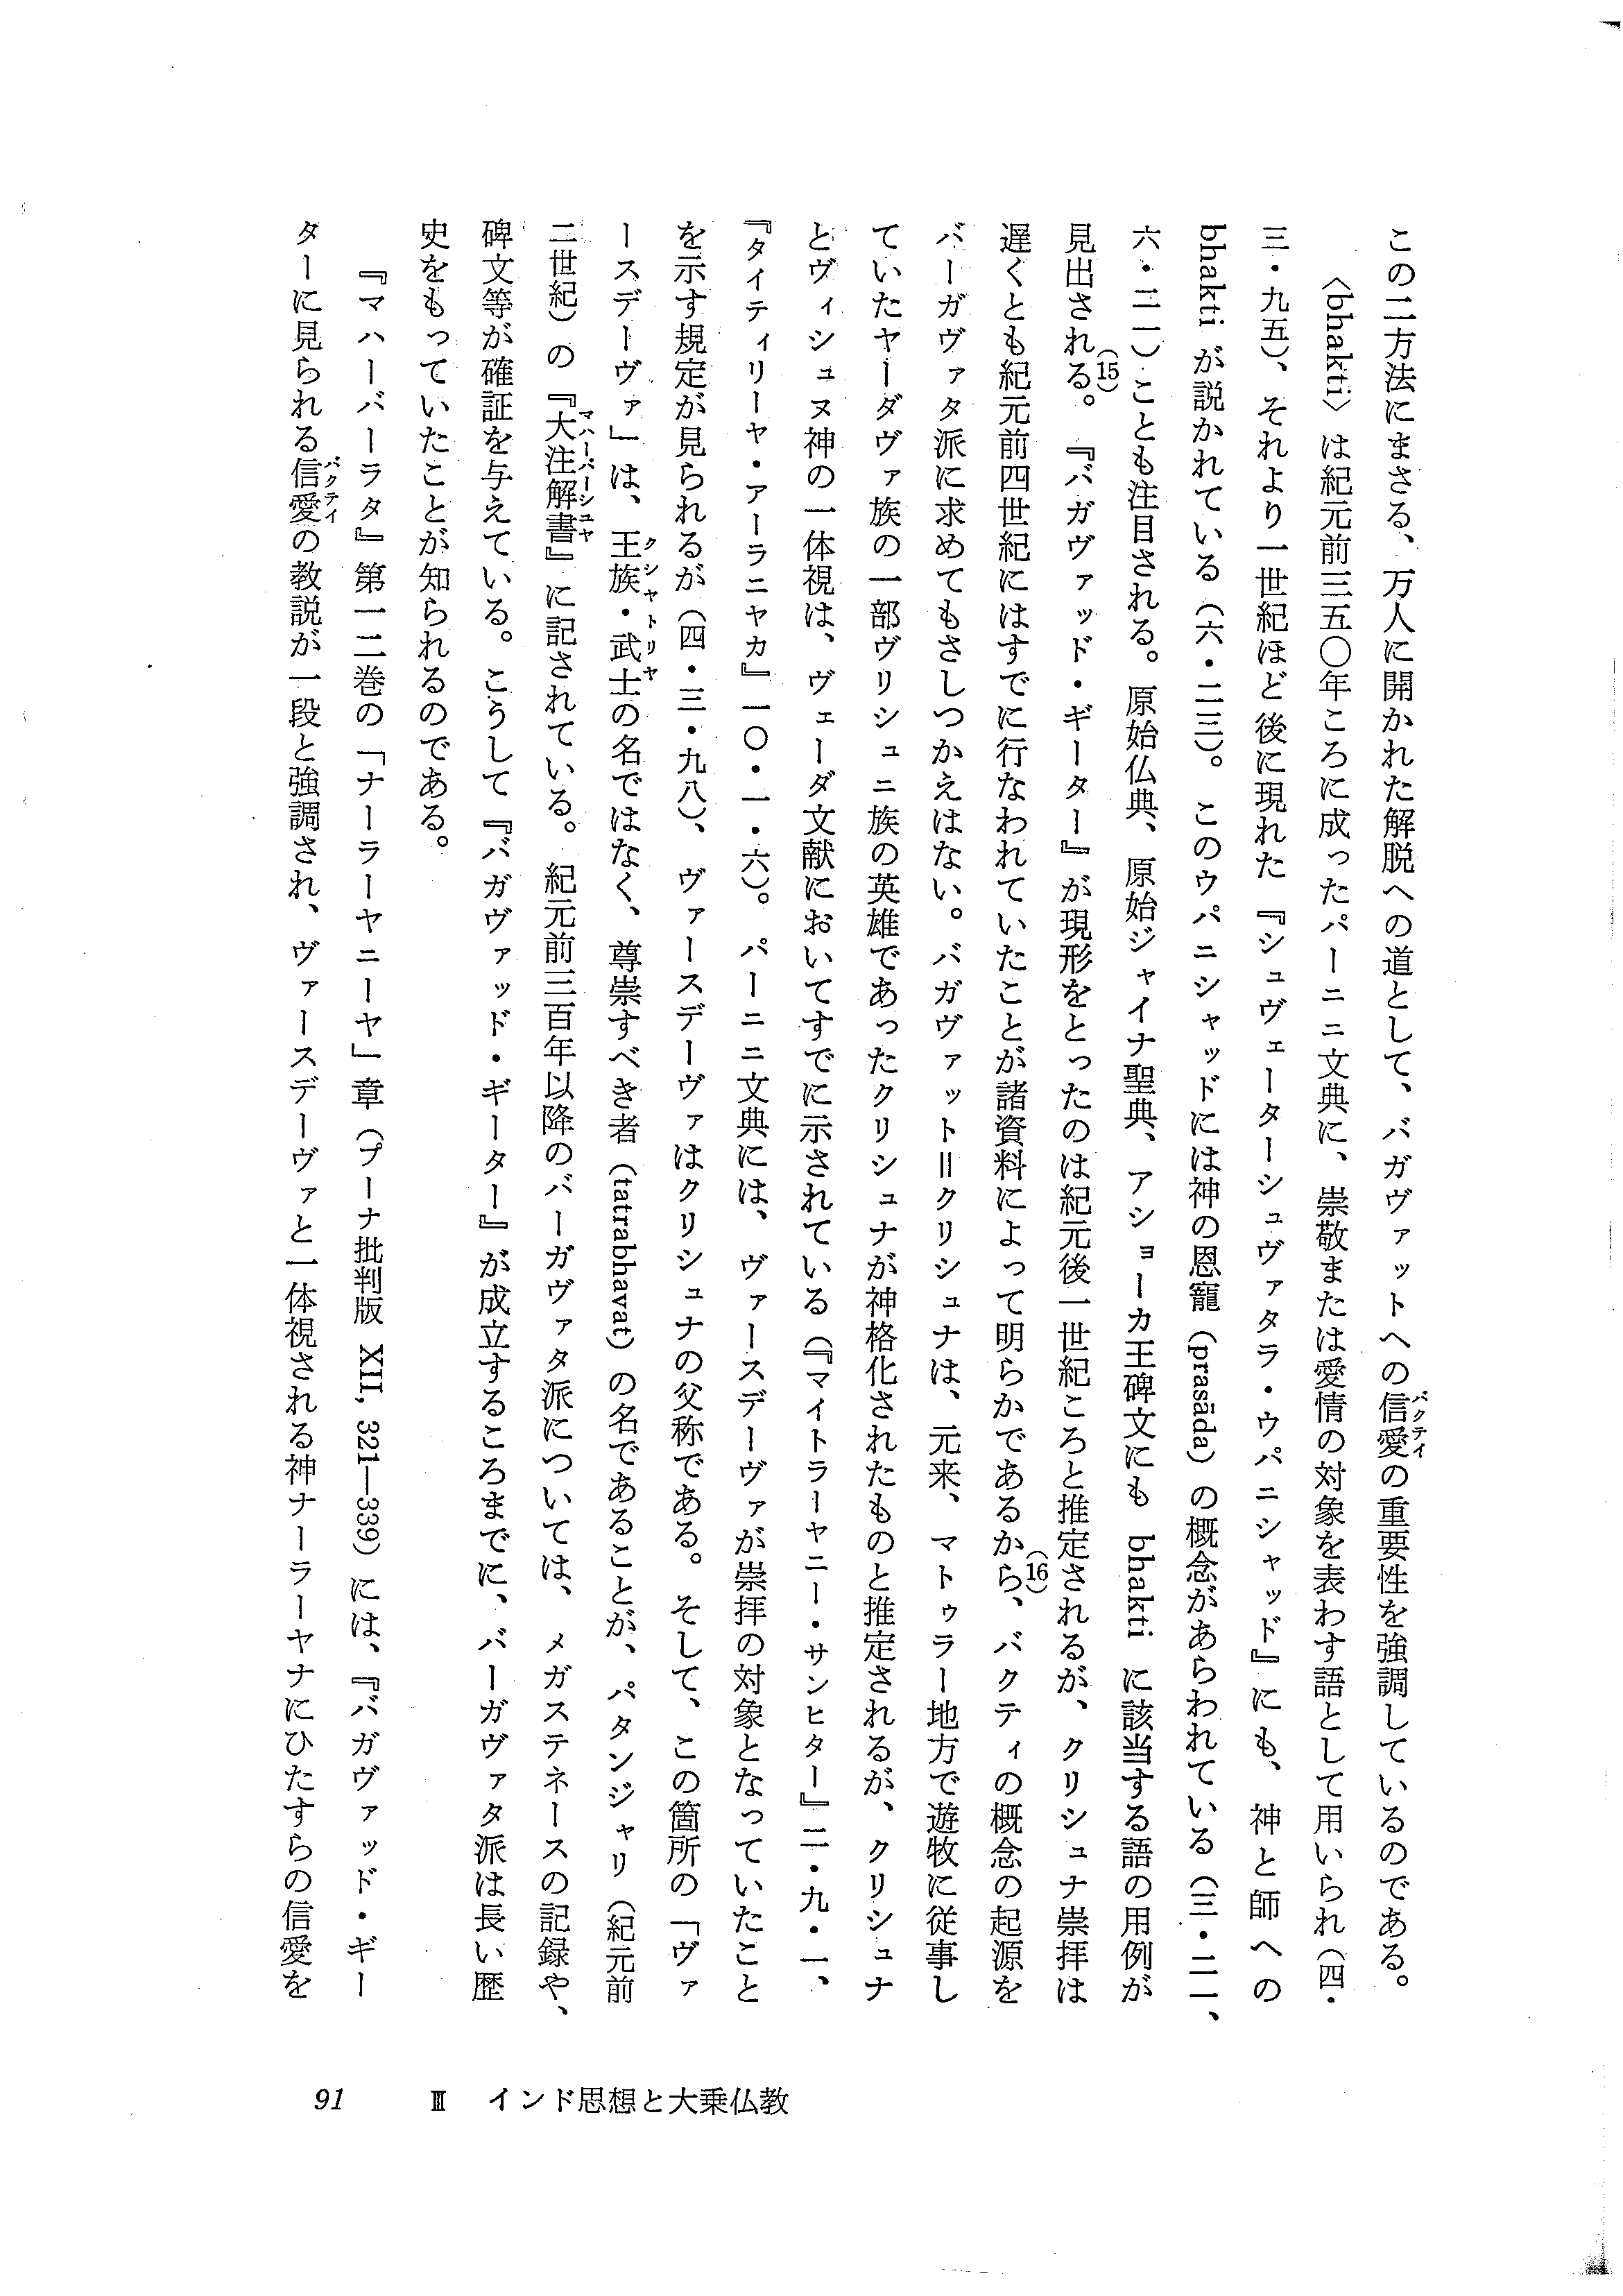 この二方法にまさる、万人に開かれた解脱への道として、バガヴァットへの信愛の重要性を強調しているのである。
〈bhakti〉は紀元前三五〇年ころに成ったパーニニ文典に、崇敬または愛情の対象を表わす語として用いられ（四・
三・九五）、それより一世紀ほど後に現れた『シュヴェーターシュヴァタラ・ウパニシャッド』にも、神と師への
bhakti が説かれている（六・二三）。このウパニシャッドには神の恩寵（prasāda）の概念があらわれている（三・二一、
六・二一）ことも注目される。原始仏典、原始ジャイナ聖典、アショーカ王碑文にも bhakti に該当する語の用例が
見出される。(15)『バガヴァッド・ギーター』が現形をとったのは紀元後一世紀ころと推定されるが、クリシュナ崇拝は
遅くとも紀元前四世紀にはすでに行なわれていたことが諸資料によって明らかであるから、(16)バクティの概念の起源を
バーガヴァタ派に求めてもさしつかえはない。バガヴァット＝クリシュナは、元来、マトゥラー地方で遊牧に従事し
ていたヤーダヴァ族の一部ヴリシュニ族の英雄であったクリシュナが神格化されたものと推定されるが、クリシュナ
とヴィシュヌ神の一体視は、ヴェーダ文献においてすでに示されている（『マイトラーヤニー・サンヒター』二・九・一、
『タイティリーヤ・アーラニヤカ』一〇・一・六）。パーニニ文典には、ヴァースデーヴァが崇拝の対象となっていたこと
を示す規定が見られるが（四・三・九八）、ヴァースデーヴァはクリシュナの父称である。そして、この箇所の「ヴァ
ースデーヴァ」は、王族・武士の名ではなく、尊崇すべき者（tatrabhavat）の名であることが、パタンジャリ（紀元前
二世紀）の『大注解書』に記されている。紀元前三百年以降のバーガヴァタ派については、メガステネースの記録や、
碑文等が確証を与えている。こうして『バガヴァッド・ギーター』が成立するころまでに、バーガヴァタ派は長い歴
史をもっていたことが知られるのである。
『マハーバーラタ』第一二巻の「ナーラーヤニーヤ」章（プーナ批判版 XII, 321—339）には、『バガヴァッド・ギー
ターに見られる信愛の教説が一段と強調され、ヴァースデーヴァと一体視される神ナーラーヤナにひたすらの信愛を
バクティ
クシャトリヤ
マハーバーシュヤ
バクティ
91 Ⅲ インド思想と大乗仏教